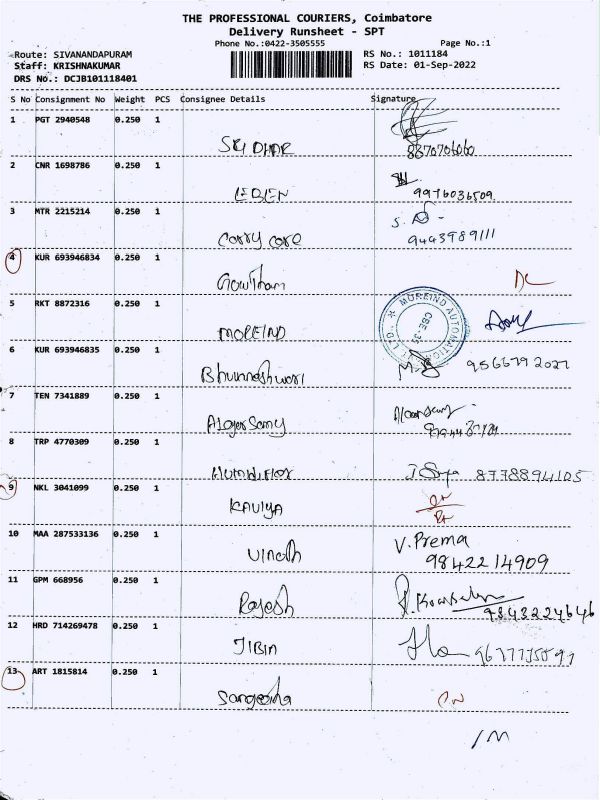 THE PROFESSIONAL COURIERS, Coimbatore
Delivery Runsheet - SPT
Phone No.:0422-3505555 Page No.:1
Route: SIVANANDAPURAM RS No.: 1011184
Staff: KRISHNAKUMAR RS Date: 01-Sep-2022
DRS No.: DCJB101118401
S No Consignment No Weight PCS Consignee Details Signature
1 PGT 2940548 0.250 1
SRI DHAR
2 CNR 1698786 0.250 1
LEBEN 9976036509
3 MTR 2215214 0.250 1
Carry care 9443989111
4 KUR 693946834 0.250 1
Gowtham DL
5 RKT 8872316 0.250 1
MOREIND MOREIND AUTOMATION CBE-35
6 KUR 693946835 0.250 1
Bhuvaneshwari 9566792027
7 TEN 7341889 0.250 1
AlagarSamy
8 TRP 4770309 0.250 1
8778894105
9 NKL 3041099 0.250 1
KAVIYA
10 MAA 287533136 0.250 1
Vinoth V.Prema
9842214909
11 GPM 668956 0.250 1
Rajesh 9843224646
12 HRD 714269478 0.250 1
JIBIN
13 ART 1815814 0.250 1
Sangeetha